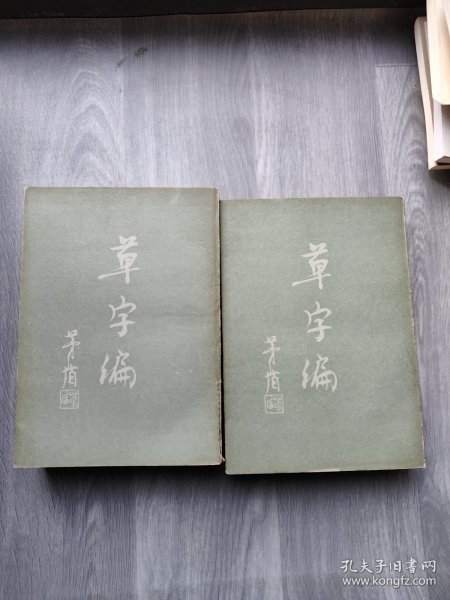 草字编
茅盾
草字编
茅盾
孔夫子旧书网
www.kongfz.com